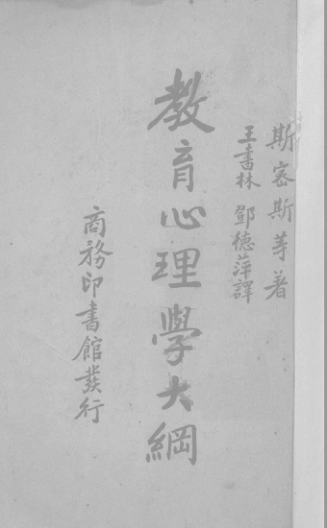 斯密斯等著
王書林 鄧德萍譯
教育心理學大綱
商務印書館發行